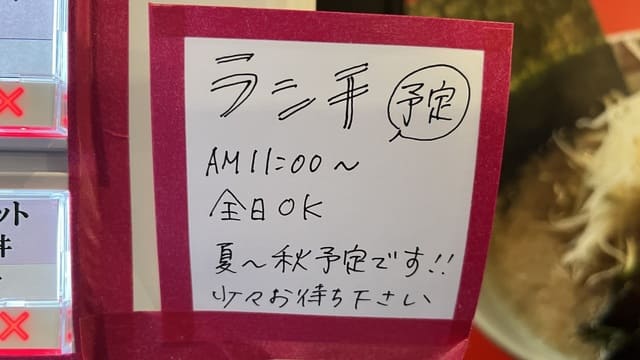 ランチ 予定
AM11:00〜
全日OK
夏〜秋予定です!!
少々お待ち下さい
ット
丼